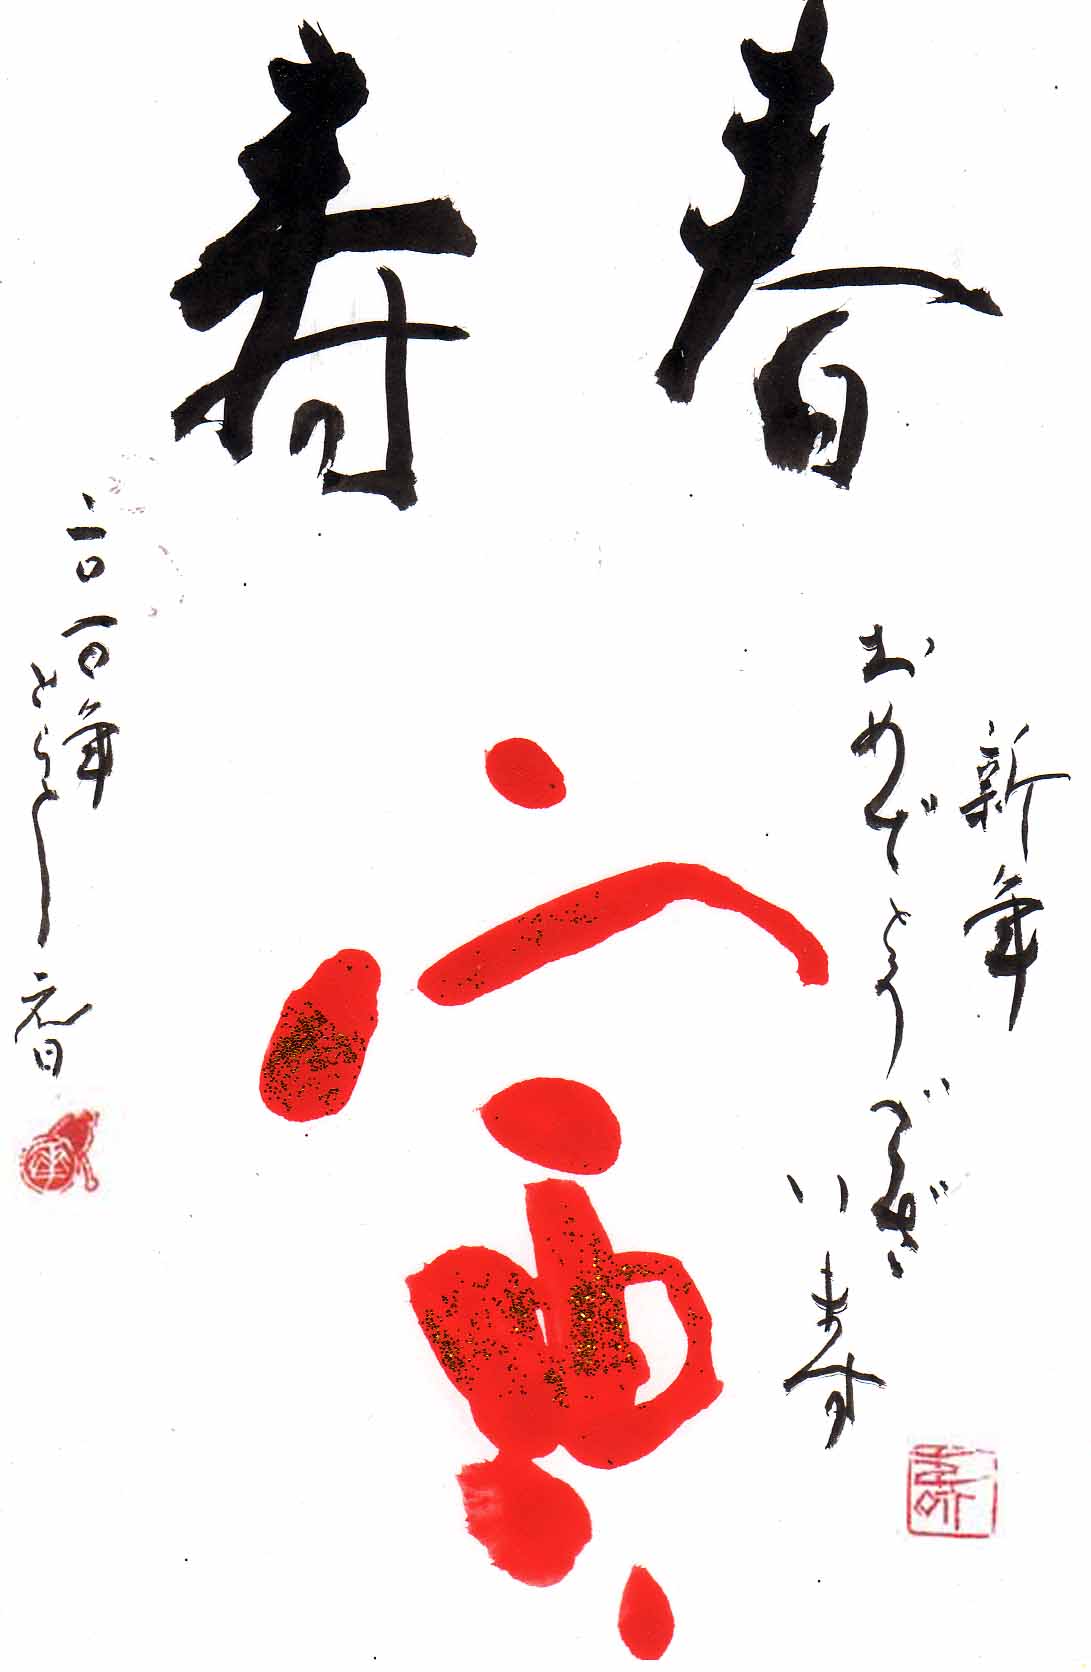 春寿
新年
おめでとうござ
います
寅
二〇一〇年
とらとし 元日